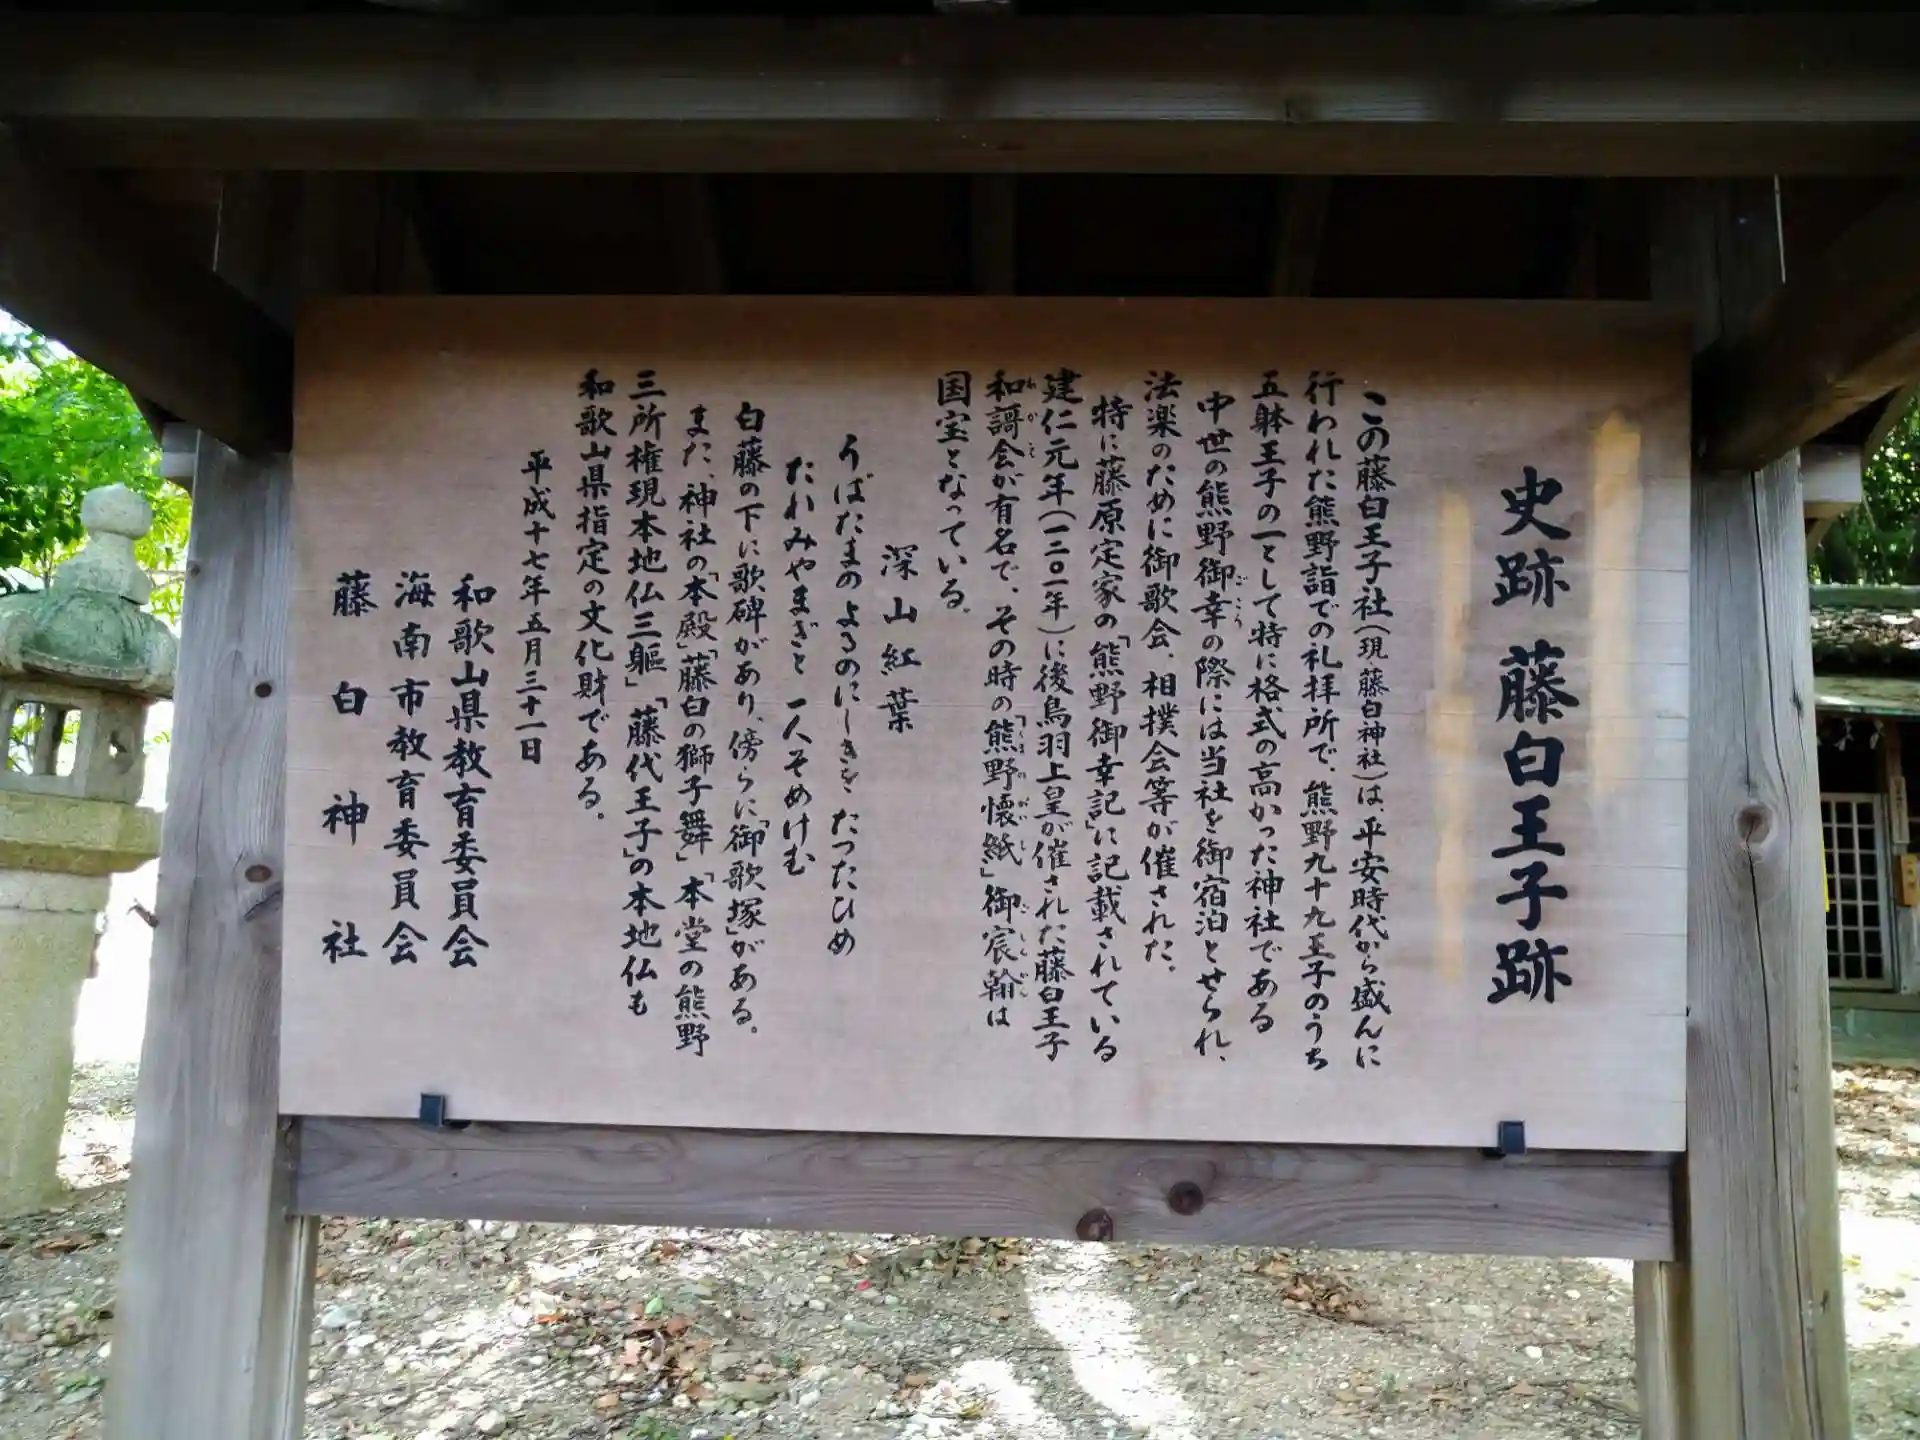 史跡 藤白王子跡
この藤白王子社（現藤白神社）は、平安時代から盛んに
行われた熊野詣での礼拝所で、熊野九十九王子のうち
五躰王子の一として特に格式の高かった神社である
中世の熊野御幸の際には当社を御宿泊とせられ、
ごこう
法楽のために御歌会、相撲会等が催された。
特に藤原定家の「熊野御幸記」に記載されている
建仁元年（一二〇一年）に後鳥羽上皇が催された藤白王子
和謌会が有名で、その時の「熊野懐紙」御宸翰は
国宝となっている。
深山紅葉
うばたまのよるのにしきを たつたひめ
たれみやまぎと 一人そめけむ
白藤の下に歌碑があり、傍らに「御歌塚」がある。
また、神社の「本殿」「藤白の獅子舞」「本堂の熊野
三所権現本地仏三躯」「藤代王子」の本地仏も
和歌山県指定の文化財である。
平成十七年五月三十一日
和歌山県教育委員会
海南市教育委員会
藤白神社